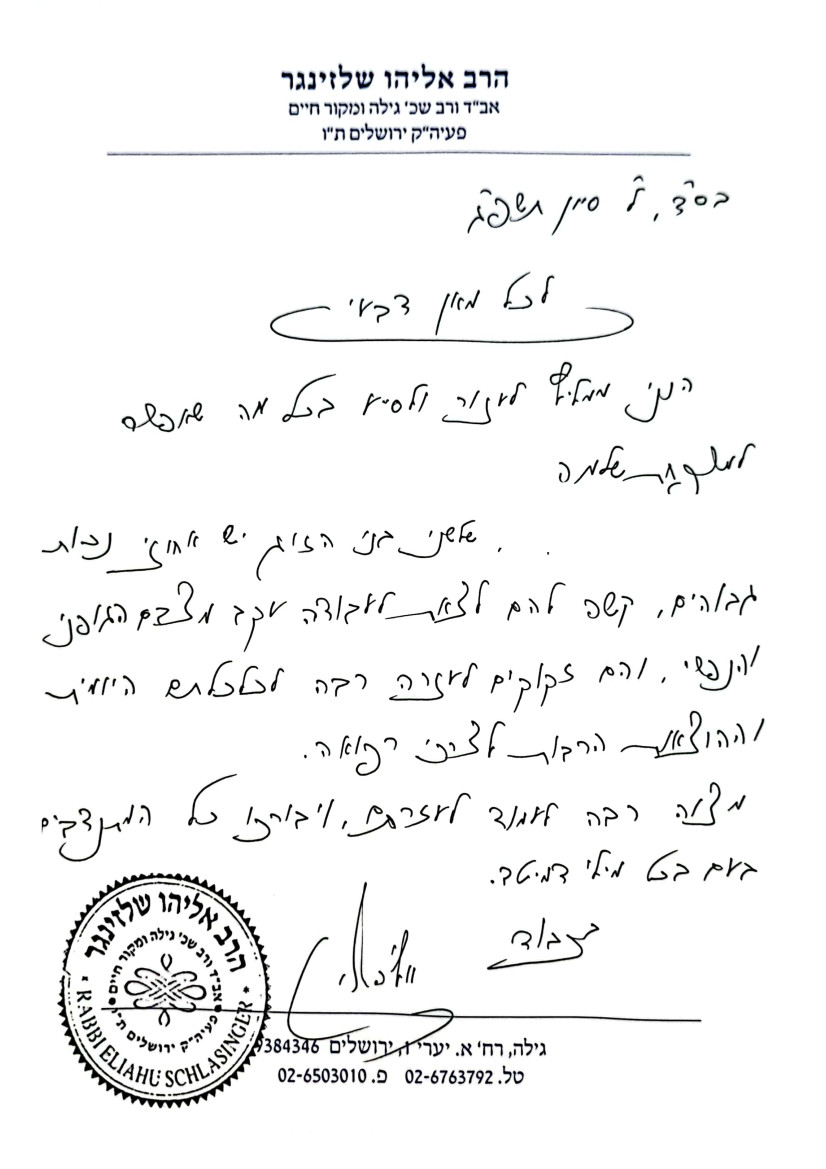 הרב אליהו שלזינגר
אב"ד ורב שכ' גילה ומקור חיים
פעיה"ק ירושלים ת"ו
בס"ד, ל' סיון תשפ"ג
לכל מאן דבעי
הנני ממליץ לעזור ולסייע בכל מה שאפשר
למשפחת שלמה
שלשני בני הזוג יש אחוזי נכות
גבוהים, קשה להם לצאת לעבודה עקב מצבם הגופני
והנפשי, והם זקוקים לעזרה רבה לכלכלתם היומית
וההוצאות הרבות לצרכי רפואה.
מצוה רבה לעמוד לעזרתם, ויבורכו כל המתנדבים
בעם בכל מילי דמיטב.
בכבוד
גילה, רח' א. יערי ירושלים 9384346
טל. 02-6763792 פ. 02-6503010
הרב אליהו שלזינגר
אב"ד ורב שכ' גילה ומקור חיים
פעיה"ק ירושלים ת"ו
RABBI ELIAHU SCHLASINGER